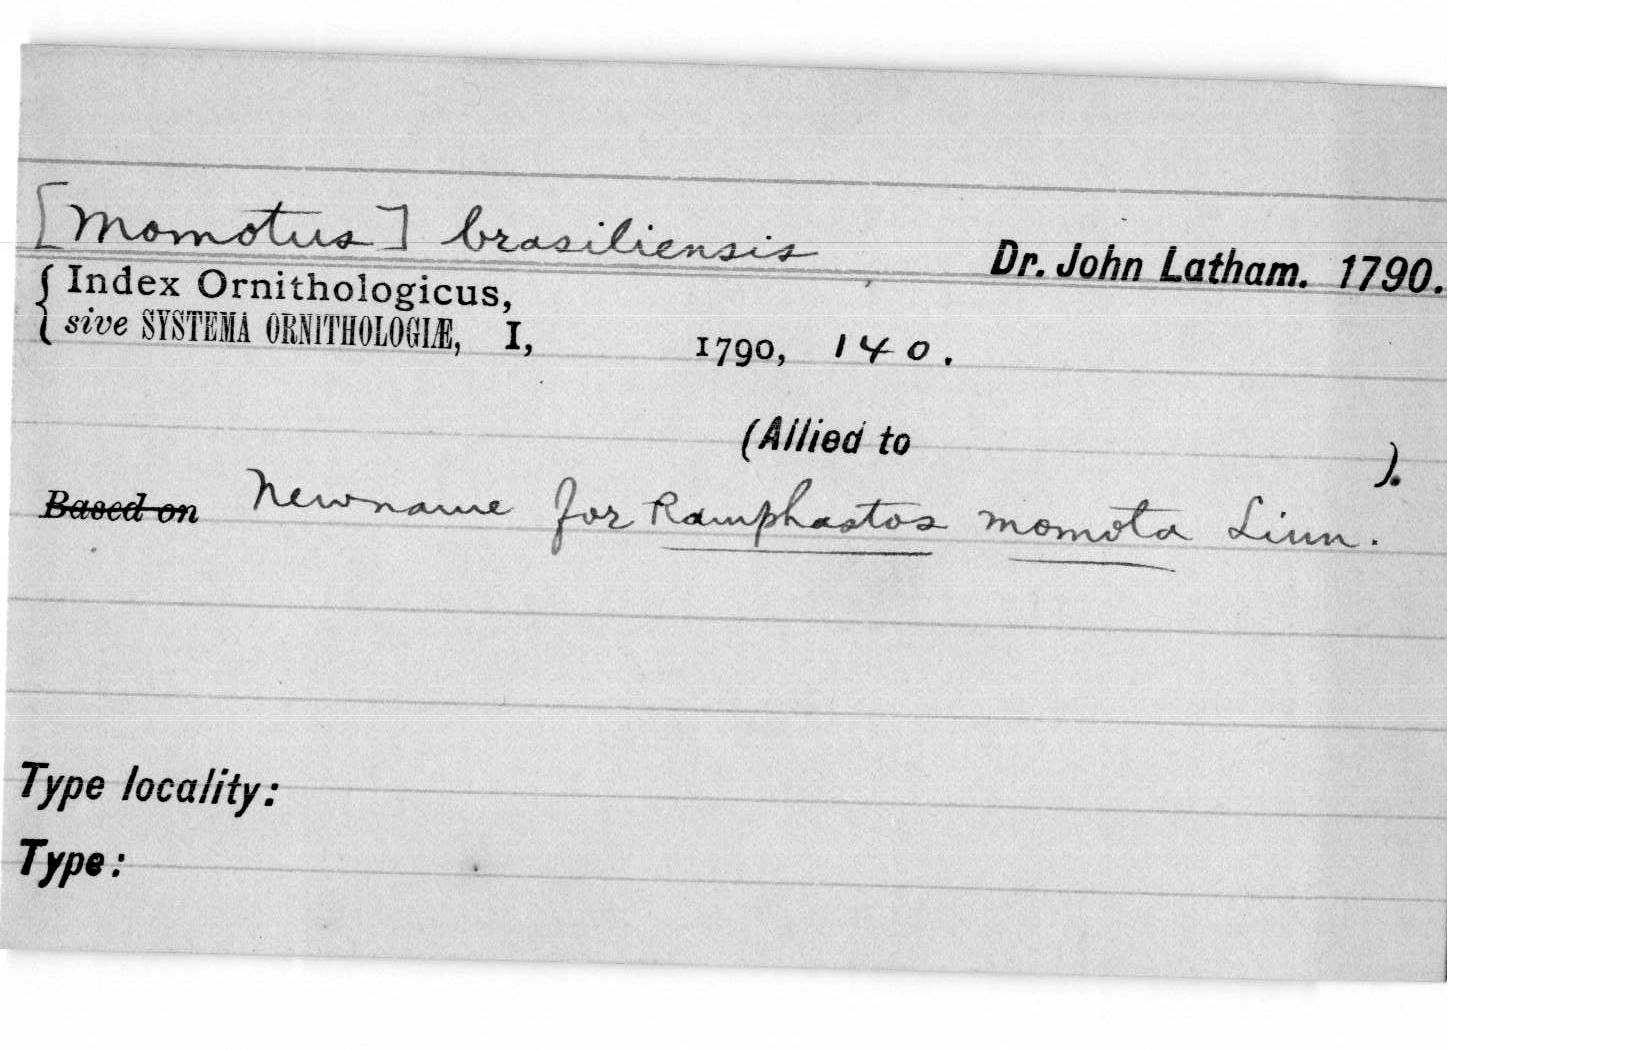 [Momotus] brasiliensis Dr. John Latham. 1790.
Index Ornithologicus,
sive SYSTEMA ORNITHOLOGIÆ, I, 1790, 140.
(Allied to ).
Based on New name for Ramphastos momota Linn.
Type locality:
Type: